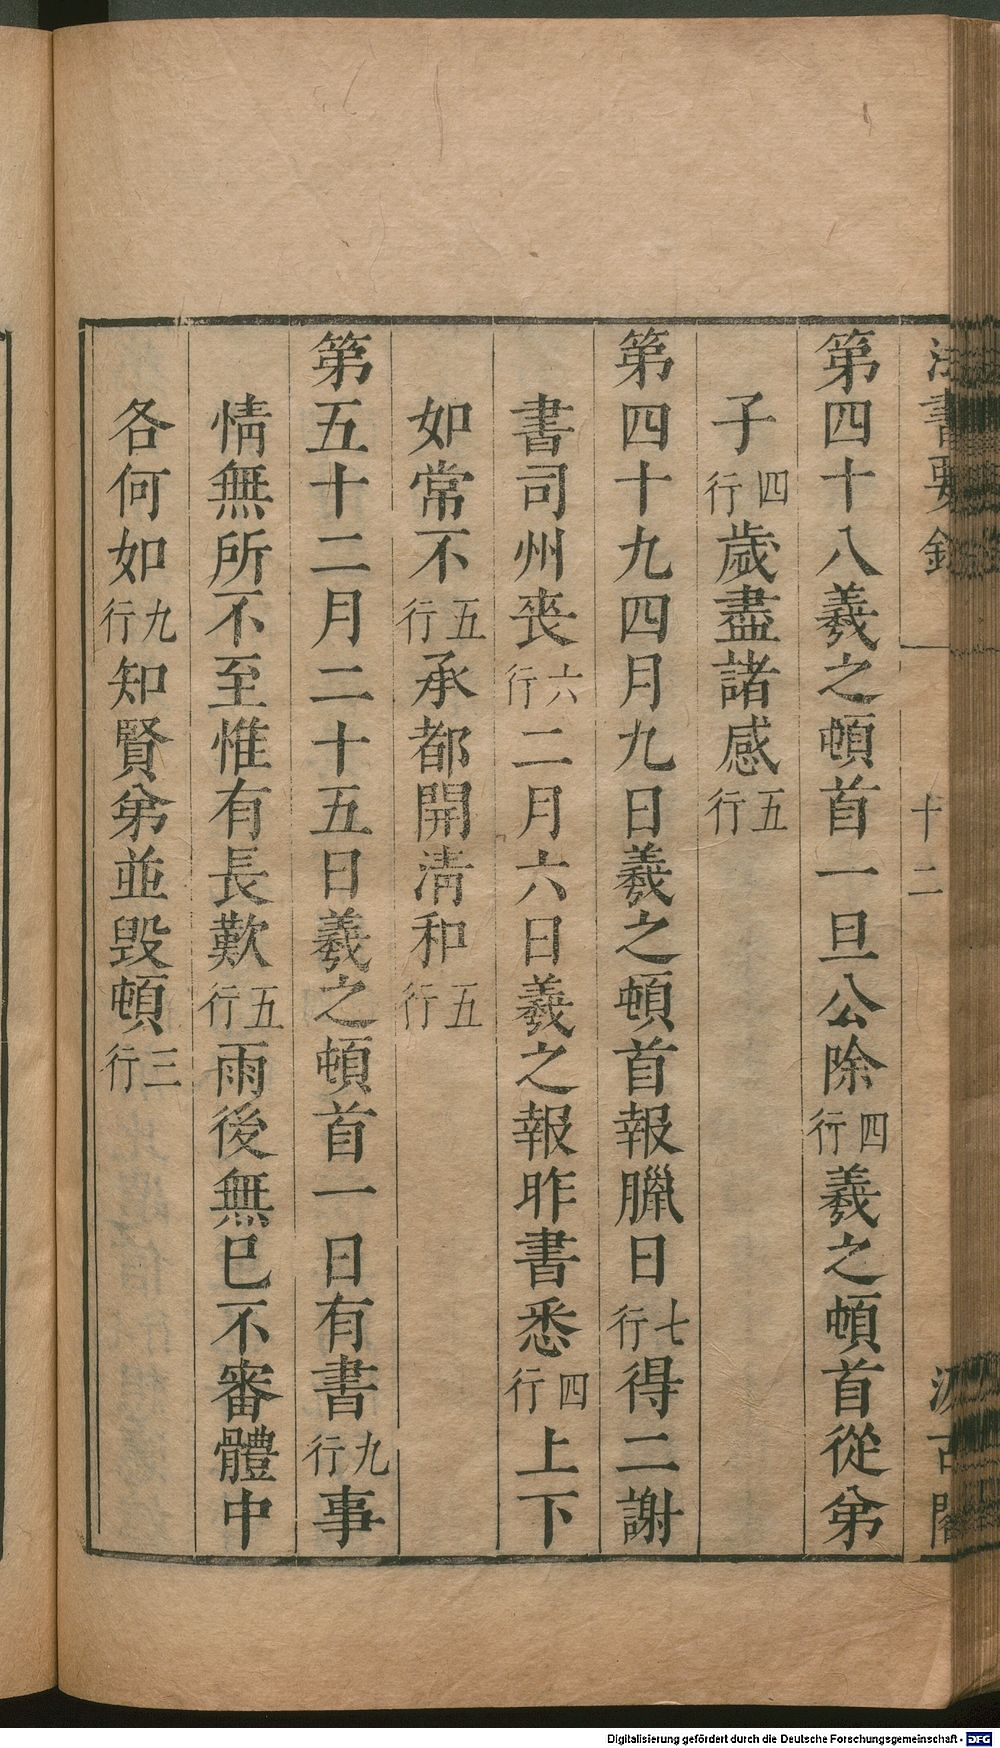 法書要錄
十二
汲古閣
第四十八羲之頓首一旦公除四行羲之頓首從弟
子四行歲盡諸感五行
第四十九四月九日羲之頓首報臘日七行得二謝
書司州喪六行二月六日羲之報昨書悉四行上下
如常不五行承都開清和五行
第五十二月二十五日羲之頓首一日有書九行事
情無所不至惟有長歎五行雨後無已不審體中
各何如九行知賢弟並毀頓三行
Digitalisierung gefördert durch die Deutsche Forschungsgemeinschaft - DFG